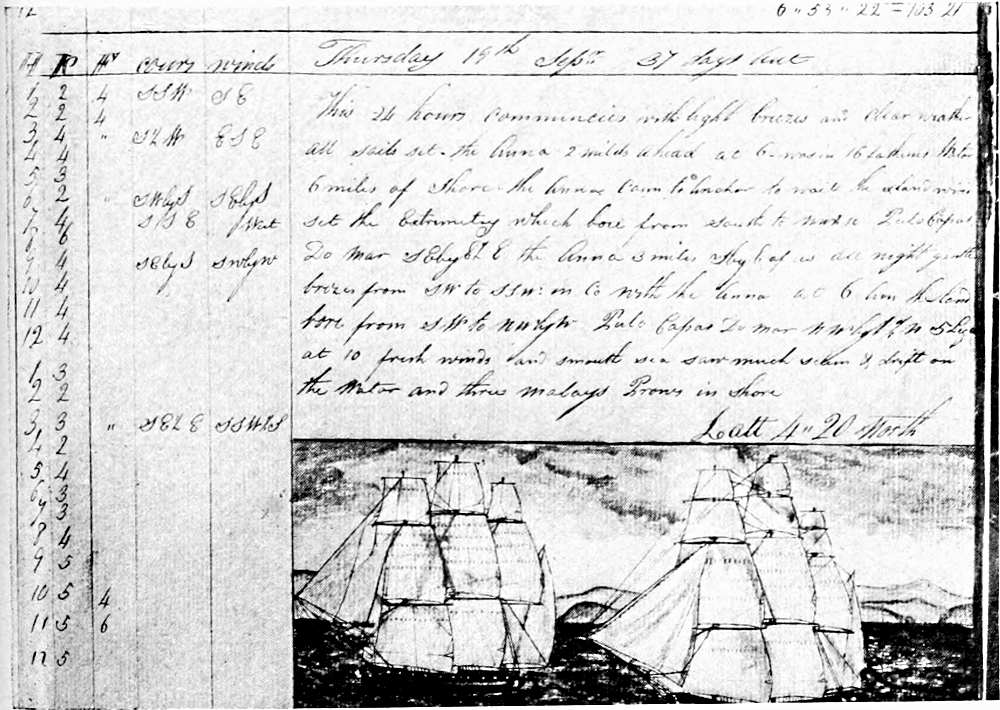 12
6 " 53 " 22 = 103 21
H K HK Cours winds Thursday 19th Septr 37 days out
1 2 4 SSW SE
2 2 4
3 4 " ESE
4 4
5 3
6 2 " SWbyS SEbyS
7 4 SSE
8 6
9 4 SEbyS SWbyW
10 4
11 4
12 4
1 3
2 2
3 3 " SEbE SSWbS
4 2
5 4
6 3
7 3
8 4
9 5
10 5 4
11 5 6
12 5
This 24 hours Commencies with light breezes and Clear weather
all sails set. the Anna 2 miles ahead at 6 was in 16 fathoms Water
6 miles of Shore the Anna Came to anchor to wait the land wind
set the Extremety which bore from South to Pulo Capas
Do Mar the Anna 3 miles of us all night gentle
brezes from SW to SSW: in Co with the Anna at 6 the land
bore from SW to NWbyW Pulo Capas Do Mar
at 10 fresh winds and smouth sea saw much scum & drift on
the Water and three malays Prows in shore
Latt 4 " 20 North